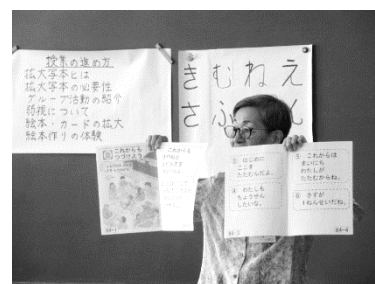 授業の進め方
拡大写本とは
拡大写本の必要性
グループ活動の紹介
弱視について
絵本・カードの拡大
絵本作りの体験
きむねえ
さふ ん
これからも
つづけよう
これからも
③ はじめに
ここを
たたむんだよ。
④ わたしも
ちょうせん
したいな。
⑤ これからは
まいにち
わたしが
たたむからね。
⑥ さすが
1ねんせいだね。
64-1
64-3
64-4